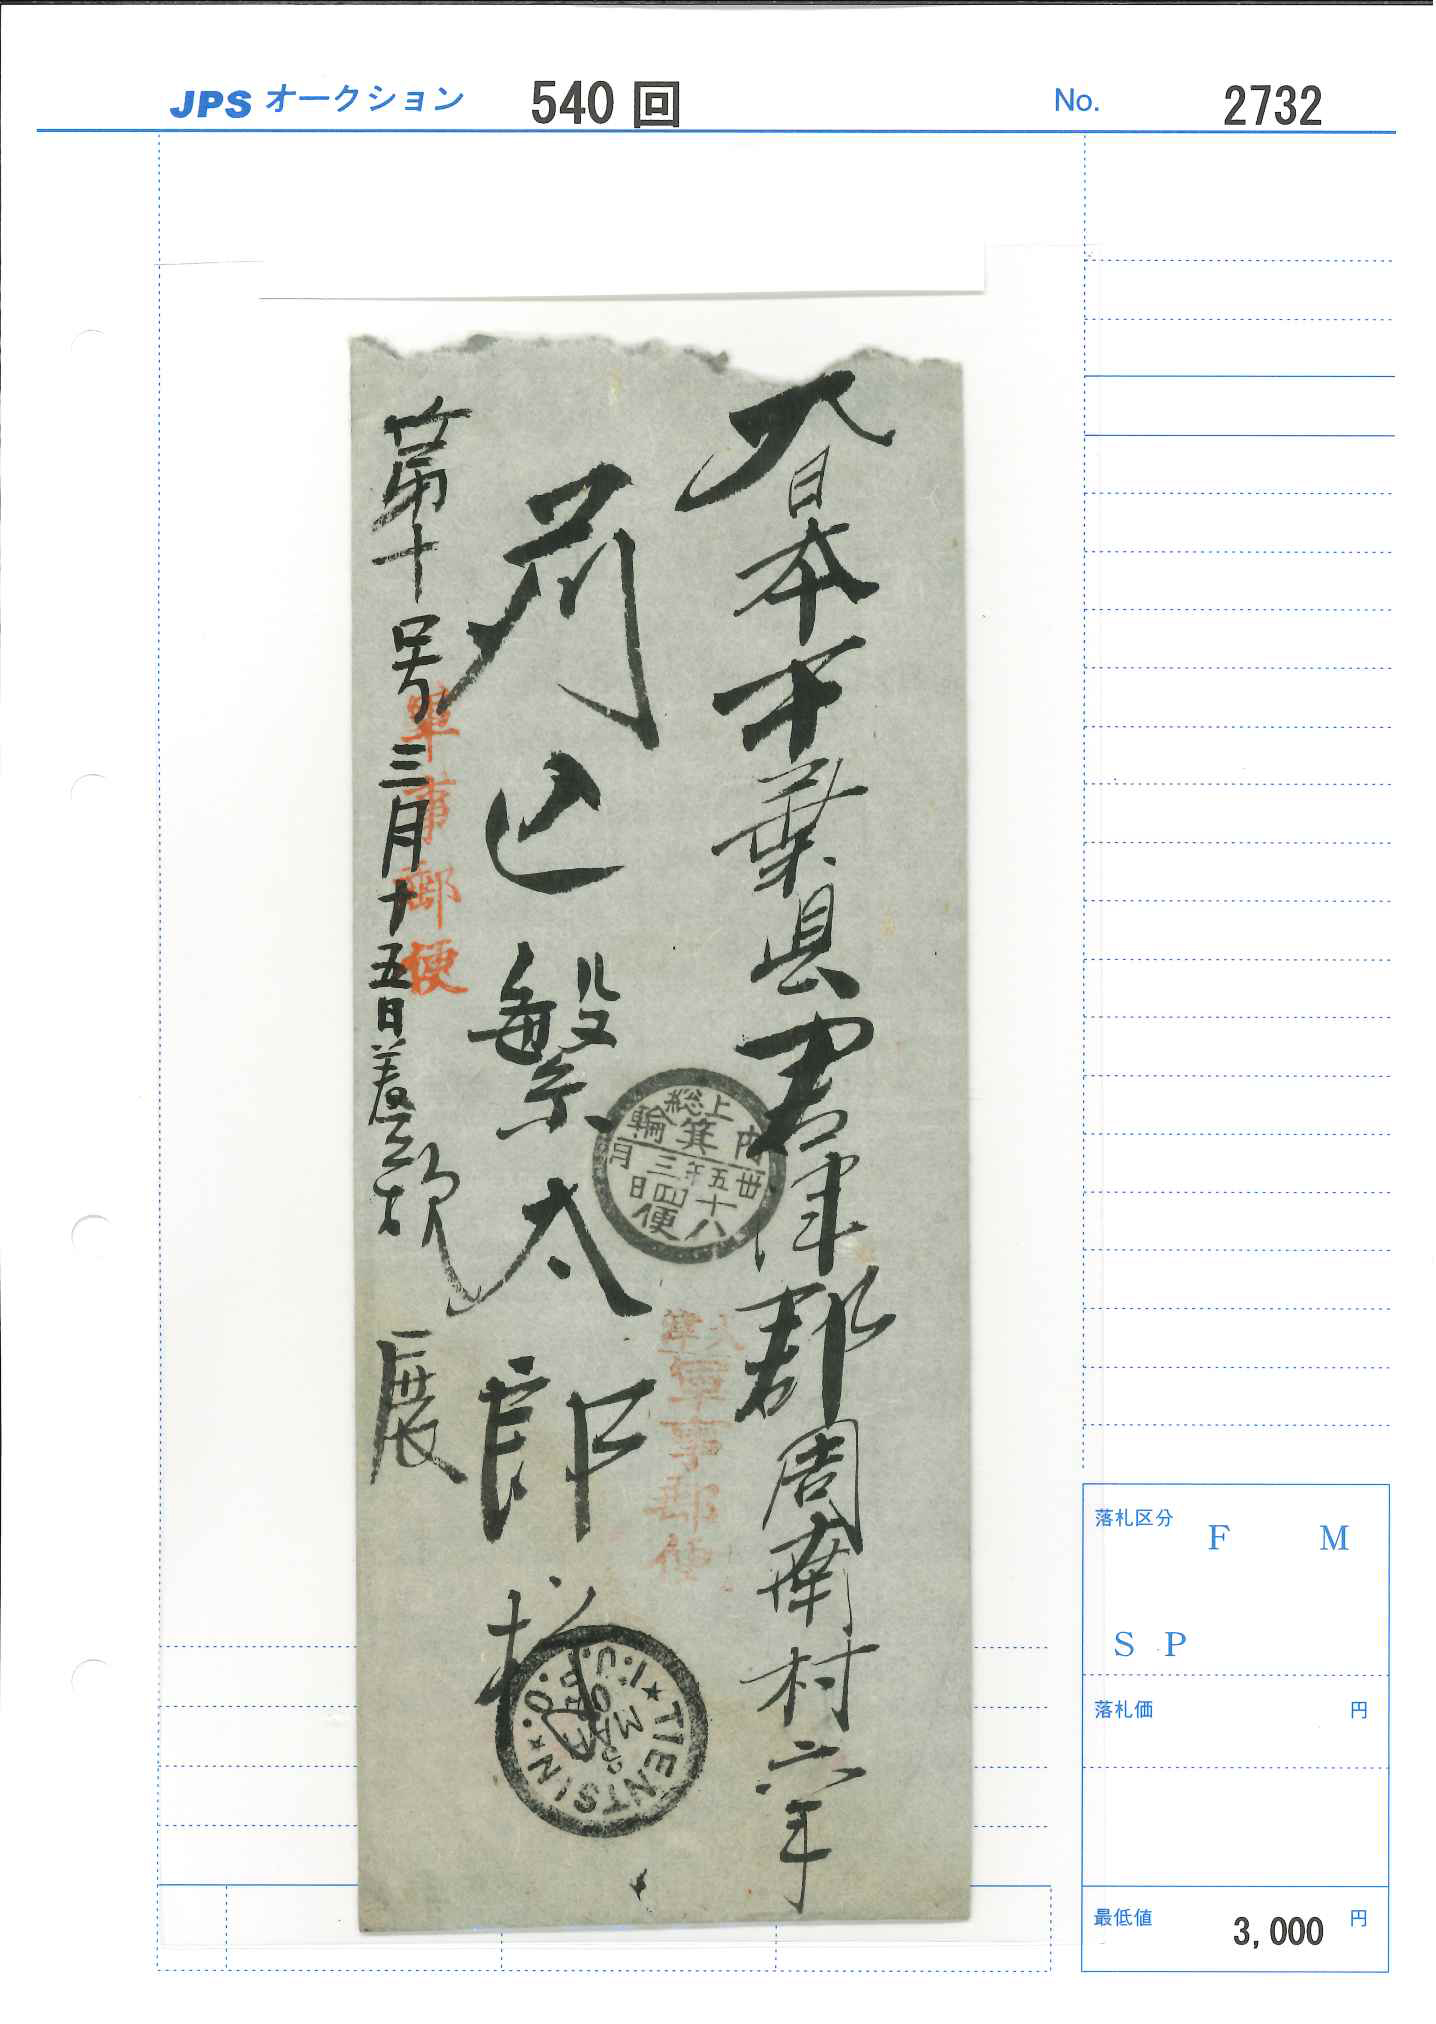 JPS オークション 540 回 No. 2732
大日本千葉县君津郡周南村六手
苅込繁太郎様
第十号三月十五日着之報 展
軍事郵便
上総
内箕輪
卅五年三月
十八日
四便
天津
軍事郵便
TIENTSIN
I.J.P.O.
MAR
02
落札区分 F M
S P
落札価 円
最低値 3,000 円